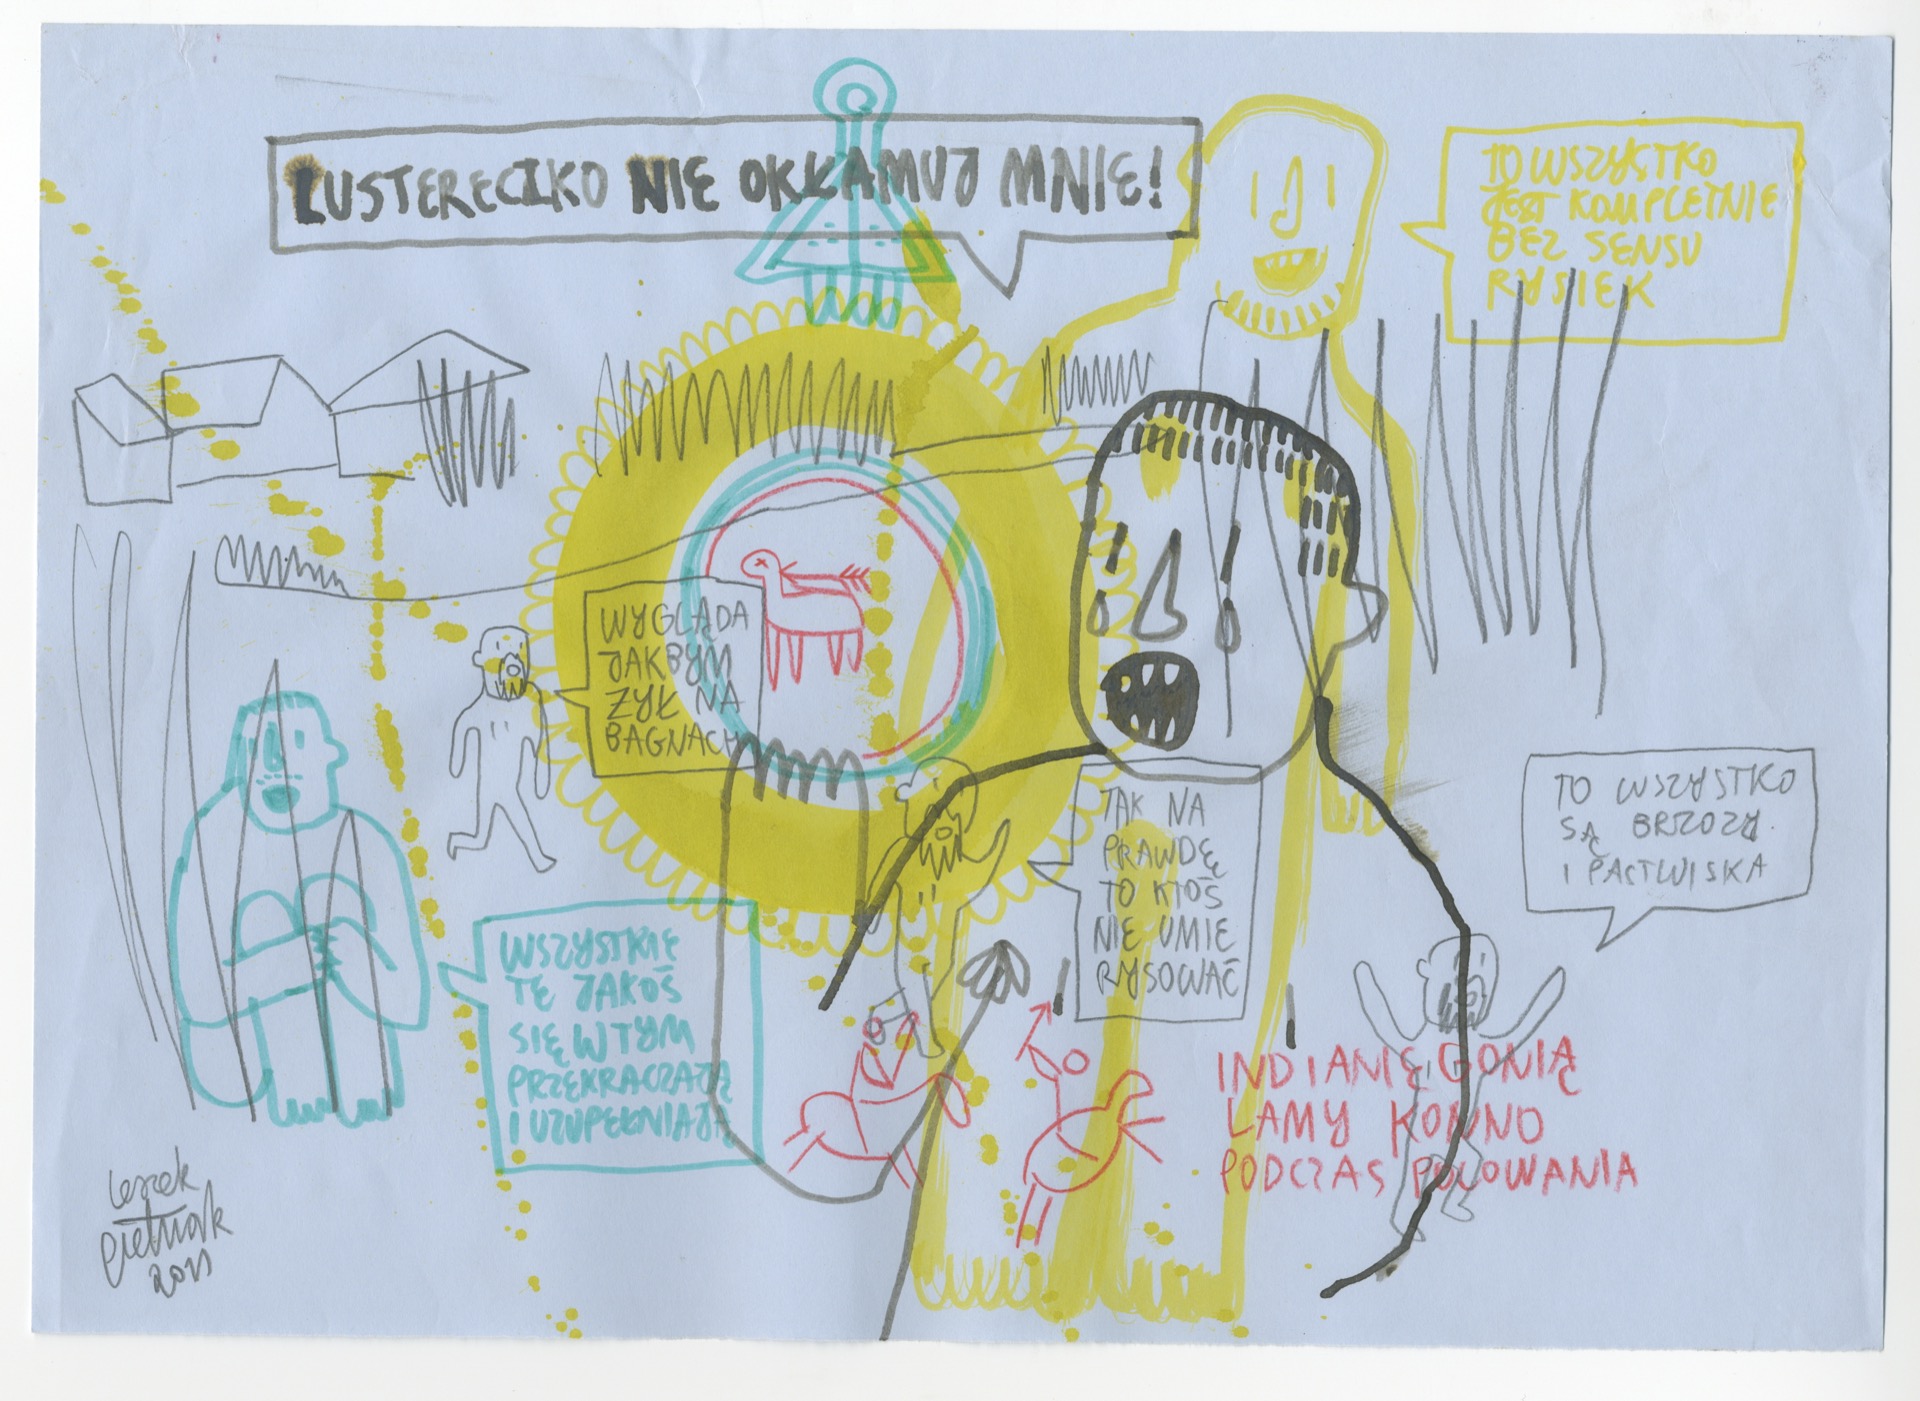 LUSTERECZKO NIE OKŁAMUJ MNIE!
TO WSZYSTKO
JEST KOMPLETNIE
BEZ SENSU
RYSIEK
WYGLĄDA
JAKBYM
ŻYŁ NA
BAGNACH
TAK NA
PRAWDĘ
TO KTOŚ
NIE UMIE
RYSOWAĆ
TO WSZYSTKO
SĄ BRZOZY
I PASTWISKA
WSZYSTKIE
TE JAKOŚ
SIĘ W TYM
PRZEKRACZAJĄ
I UZUPEŁNIAJĄ
INDIANIE GONIĄ
LAMY KONNO
PODCZAS POLOWANIA
2011